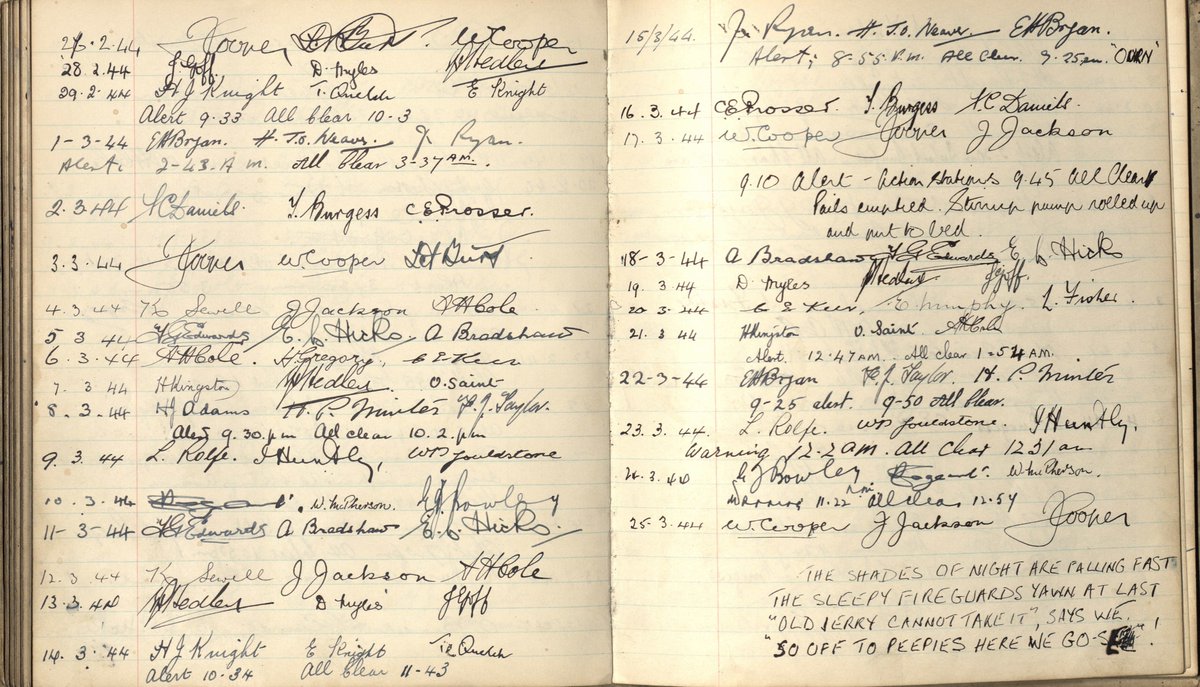 28.2.44 J Goff. D. Myles W Hedley
29.2.44 H J Knight T. Quelch E Knight
Alert 9.33 All clear 10-3
1-3-44 EH Bryan. H. J.O. Neaves. J. Ryan.
Alert: 2-43. A m. All Clear 3-37 AM.
2.3.44 H.C Daniells. T. Burgess C E Prosser.
3.3.44 W. Cooper
4.3.44 K Sewell J Jackson A H Cole
5 3 44 H G Edwards E. L. Hicks. A Bradshaw
6.3.44 A H Cole. H Gregory, C E Keir
7.3.44 H Kingston W Hedley. O. Saint
8.3.44 H J Adams H. P. Minter F. J. Taylor.
Alert 9.30. p.m All clear 10. 2. p.m
9.3.44 L. Rolfe. J Huntly, W D Gouldstone
10.3.44 W. McPherson. E J Bowley
11-3-44 H G Edwards A Bradshaw E. L. Hicks.
12.3.44 K Sewell J Jackson A H Cole
13.3.44 W Hedley D Myles J Goff
14.3.44 H J Knight E Knight T. Quelch
Alert 10-34 All Clear 11-43
15/3/44. J. Ryan. H. J.O. Neaves. EH Bryan.
Alert; 8-55 P.M. All Clear. 9.25 pm.
16.3.44 C E Prosser. T. Burgess H.C Daniells.
17.3.44 W. Cooper J Jackson
9.10 Alert - Action Stations 9.45 All Clear
Pails emptied. Stirrup pump rolled up
and put to bed.
18-3-44 A Bradshaw H G Edwards E L Hicks
19.3.44 D. Myles W Hedley J Goff.
20-3-44 C E Keir, E Murphy. L. Fisher.
21.3.44 H Kingston O. Saint A H Cole
Alert. 12.47 AM. All clear 1-54 AM.
22-3-44 EH Bryan F. J. Taylor. H. P. Minter
9-25 alert. 9-50 All Clear.
23.3.44. L. Rolfe. W D Gouldstone. J Huntly.
Warning 12.2 am. All Clear 12 31 am
E J Bowley W. McPherson.
Warning 11.22 pm. All clear 12.54
25-3.44 W Cooper J Jackson
THE SHADES OF NIGHT ARE FALLING FAST
THE SLEEPY FIREGUARDS YAWN AT LAST
"OLD JERRY CANNOT TAKE IT", SAYS WE.
"SO OFF TO PEEPIES HERE WE GO